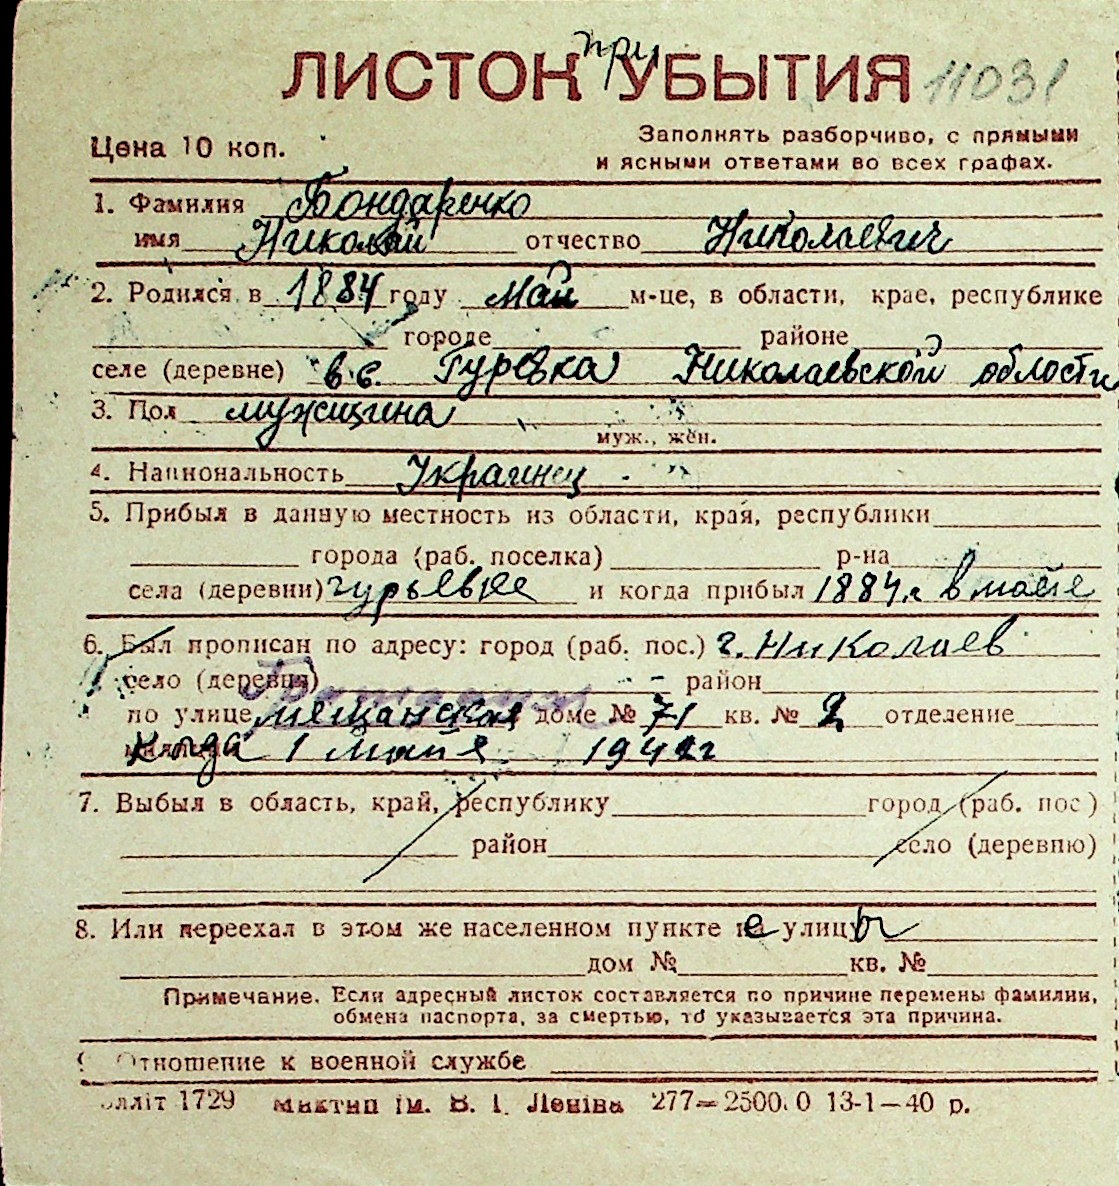 при
ЛИСТОК УБЫТИЯ 11031
Цена 10 коп.
Заполнять разборчиво, с прямыми
и ясными ответами во всех графах.
1. Фамилия Бондаренко
имя Николай отчество Николаевич
2. Родился в 1884 году май м-це, в области, крае, республике
городе районе
селе (деревне) в с. Гуревка Николаевской области
3. Пол мужщина
муж., жен.
4. Национальность Украинец
5. Прибыл в данную местность из области, края, республики
города (раб. поселка) р-на
села (деревни) гурьевке и когда прибыл 1884 г. в майе
6. Был прописан по адресу: город (раб. пос.) г. Николаев
село (деревня) район
по улице мещанская доме № 71 кв. № 2 отделение
Когда 1 майя 194 г
7. Выбыл в область, край, республику город (раб. пос)
район село (деревню)
8. Или переехал в этом же населенном пункте с улицы
дом № кв. №
Примечание. Если адресный листок составляется по причине перемены фамилии,
обмена паспорта, за смертью, то указывается эта причина.
9 Отношение к военной службе
1729 ім. В. І. Леніна 277—2500.0 13-1—40 р.